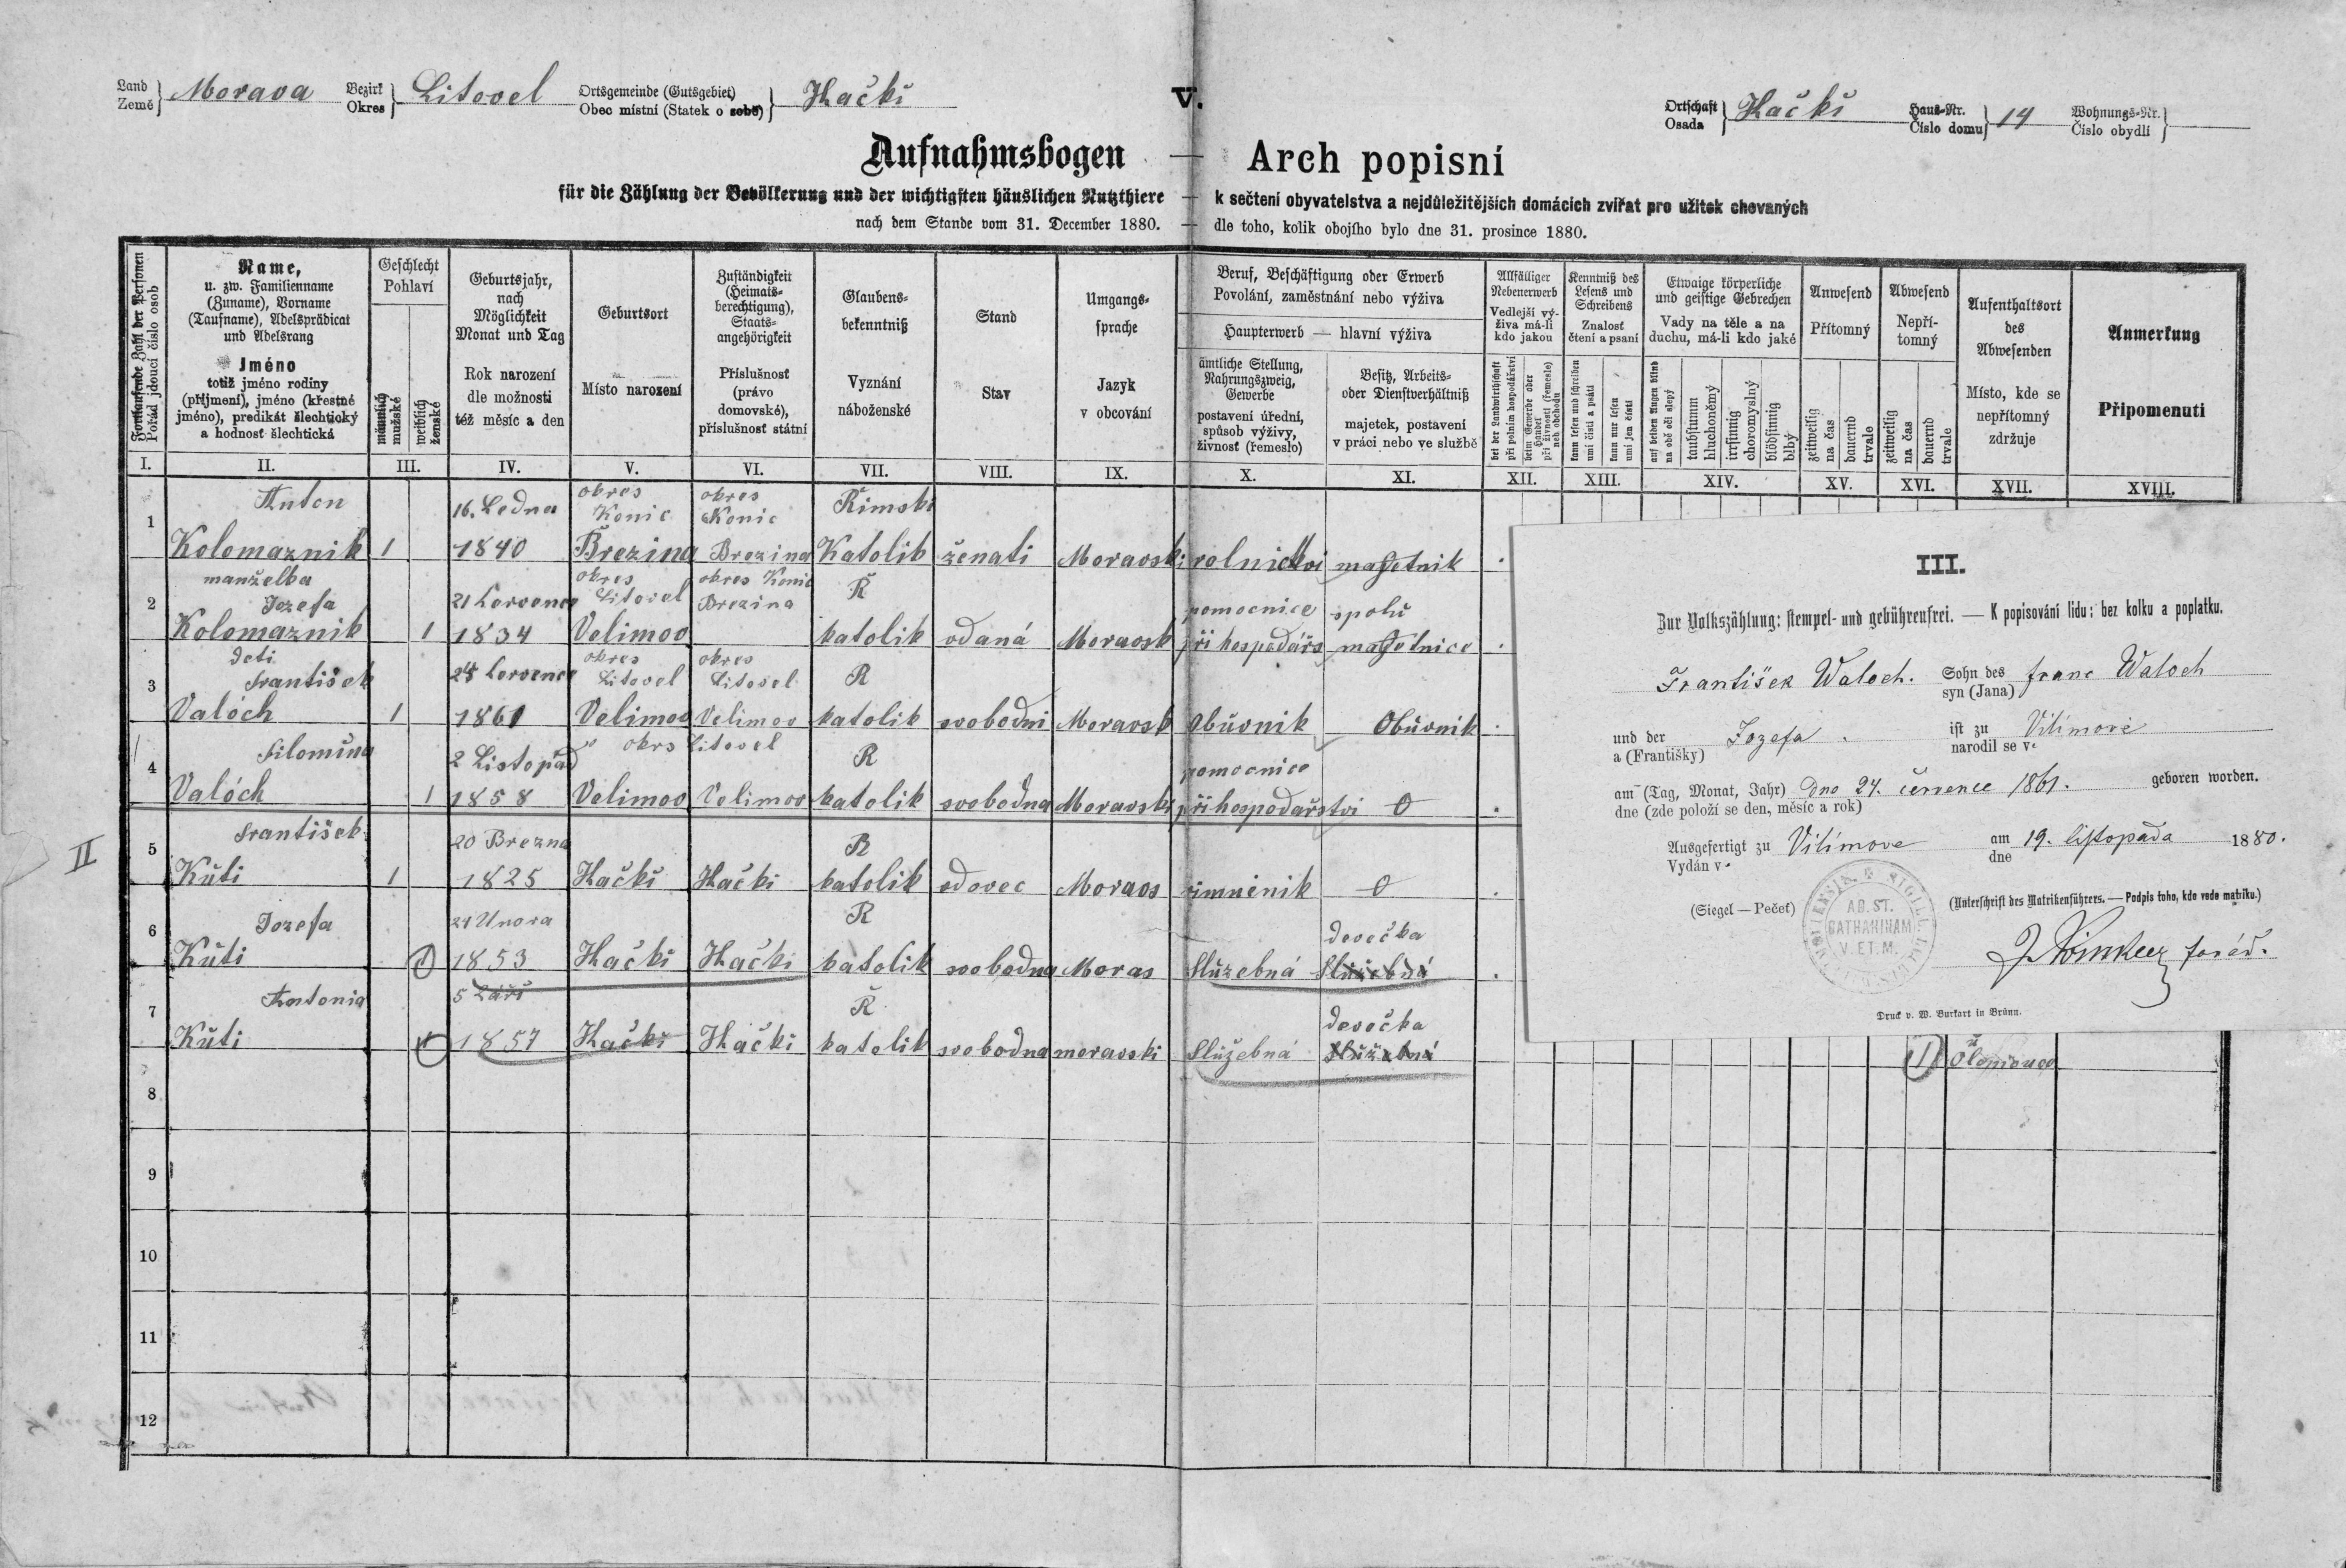 Land Země } Morava Bezirk Okres } Litovel Ortsgemeinde (Gutsgebiet) Obec místní (Statek o sobě) } Hačkí
V.
Ortschaft Osada } Hačkí Haus-Nr. Číslo domu } 14 Wohnungs-Nr. Číslo obydlí }
Aufnahmsbogen — Arch popisní
für die Zählung der Bevölkerung und der wichtigsten häuslichen Nutzthiere — k sečtení obyvatelstva a nejdůležitějších domácích zvířat pro užitek chovaných
nach dem Stande vom 31. December 1880. — dle toho, kolik obojího bylo dne 31. prosince 1880.
Fortlaufende Zahl der Personen
Pořád jdoucí číslo osob
Name,
u. zw. Familienname
(Zuname), Vorname
(Taufname), Adelsprädicat
und Adelsrang
Jméno
totiž jméno rodiny
(příjmení), jméno (křestné
jméno), predikát šlechtický
a hodnosť šlechtická
Geschlecht
Pohlaví
männlich
mužské
weiblich
ženské
Geburtsjahr,
nach
Möglichkeit
Monat und Tag
Rok narození
dle možnosti
též měsíc a den
Geburtsort
Místo narození
Zuständigkeit
(Heimats-
berechtigung),
Staats-
angehörigkeit
Příslušnosť
(právo
domovské),
příslušnosť státní
Glaubens-
bekenntniß
Vyznání
náboženské
Stand
Stav
Umgangs-
sprache
Jazyk
v obcování
Beruf, Beschäftigung oder Erwerb
Povolání, zaměstnání nebo výživa
Haupterwerb — hlavní výživa
ämtliche Stellung,
Nahrungszweig,
Gewerbe
postavení úřední,
spůsob výživy,
živnosť (řemeslo)
Besitz, Arbeits-
oder Dienstverhältniß
majetek, postavení
v práci nebo ve službě
Allfälliger
Nebenerwerb
Vedlejší vý-
živa má-li
kdo jakou
bei der Landwirthschaft
při polním hospodářství
beim Gewerbe oder
Handel
při živnosti (řemesle)
neb obchodu
Kenntniß des
Lesens und
Schreibens
Znalosť
čtení a psaní
kann lesen und schreiben
umí čísti a psáti
kann nur lesen
umí jen čísti
Etwaige körperliche
und geistige Gebrechen
Vady na těle a na
duchu, má-li kdo jaké
auf beiden Augen blind
na obě oči slepý
taubstumm
hluchoněmý
irrsinnig
choromyslný
blödsinnig
blbý
Anwesend
Přítomný
zeitweilig
na čas
dauernd
trvale
Abwesend
Nepří-
tomný
zeitweilig
na čas
dauernd
trvale
Aufenthaltsort
des
Abwesenden
Místo, kde se
nepřítomný
zdržuje
Anmerkung
Připomenutí
I. II. III. IV. V. VI. VII. VIII. IX. X. XI. XII. XIII. XIV. XV. XVI. XVII. XVIII.
Anton 16. Ledna okres Konic okres Konic Řimski
1 Kolomaznik 1 1840 Březina Brezina Katolik ženati Moravski rolnictvi majetnik
manželka okres okres Konic Ř
2 Jozefa 21 Července Litovel Brezina pomocnice spolu
Kolomaznik 1 1834 Velimov katolik vdaná Moravsk při hospodářs majetnice
děti okres okres
3 František 24 Července Litovel Litovel R
Valóch 1 1861 Velimov Velimov katolik svobodni Moravsk Obůvnik Obůvnik
Filoména 2 Listopad okrs Litovel R pomocnice
4 Valóch 1 1858 Velimov Velimov katolik svobodna Moravski při hospodařstvi 0
II
František 20 Brezna R
5 Kůti 1 1825 Hački Hački katolik vdovec Moravs 0
Jozefa 24 Unora R devečka
6 Kůti 1 1853 Hački Hački katolik svobodna Moras Služebná Služebná
Antonia 5 Září Ř devečka
7 Kůti 1 1857 Hački Hački katolik svobodna moravski Služebná Služebná 1 Olomouca
8
9
10
11
12
III.
Zur Volkszählung: stempel- und gebührenfrei. — K popisování lidu: bez kolku a poplatku.
František Waloch. Sohn des syn (Jana) Franc Waloch
und der a (Františky) Jozefa. ist zu narodil se v Vilímově
am (Tag, Monat, Jahr) dne (zde položí se den, měsíc a rok) dne 24. července 1861. geboren worden.
Ausgefertigt zu Vydán v Vilímove am dne 19. listopada 1880.
(Siegel — Pečeť) (Unterschrift des Matrikenführers. — Podpis toho, kdo vede matriku.)
AD. ST.
CATHARINAM
V. ET. M.
farář.
Druck v. W. Burkart in Brünn.